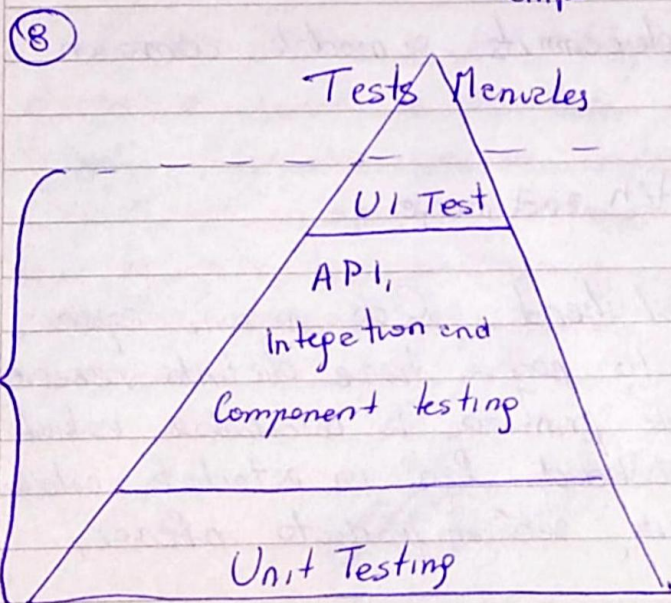 8
Tests Menuales
UI Test
API,
Integetion and
Component testing
Unit Testing